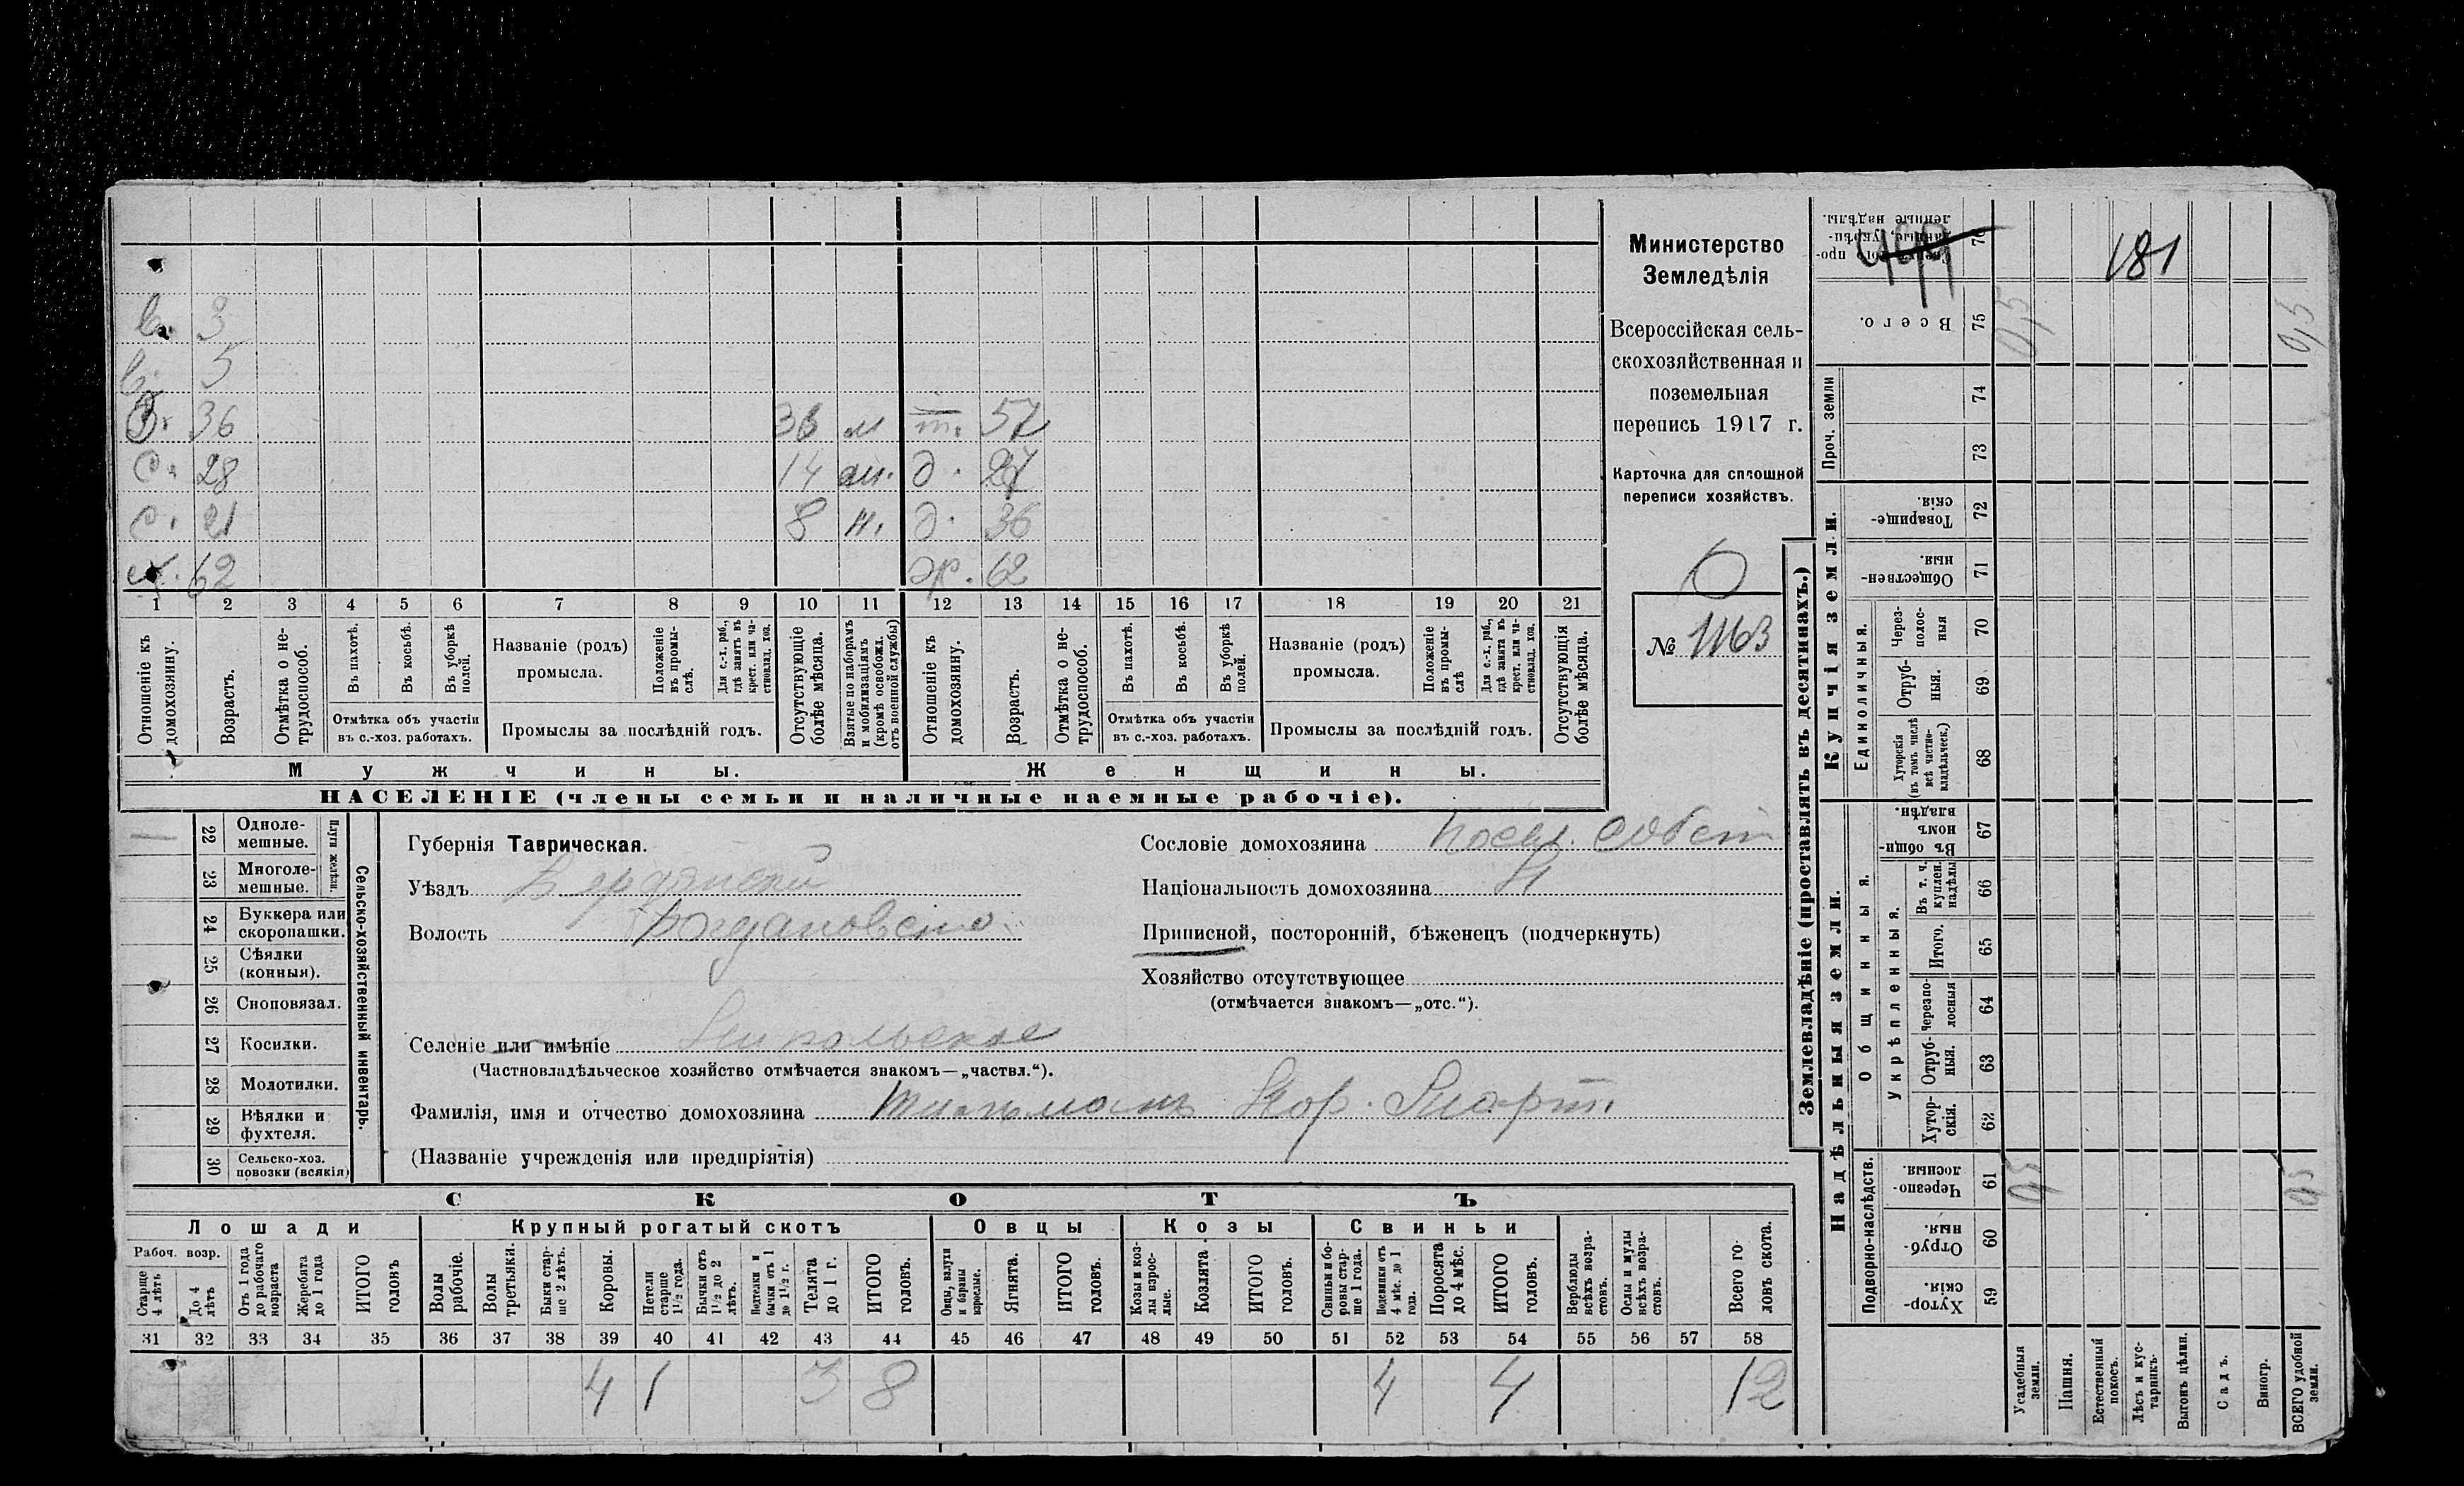 Министерство
Земледѣлія
Всероссійская сель-
скохозяйственная и
поземельная
перепись 1917 г.
Карточка для сплошной
переписи хозяйствъ.
№ 1163
3
5
36 36 м 57
с. 28 14 д. 27
с. 21 8 н. д. 36
х. 62 62
1 2 3 4 5 6 7 8 9 10 11 12 13 14 15 16 17 18 19 20 21
Отношеніе къ домохозяину.
Возрастъ.
Отмѣтка о не-трудоспособ.
Въ пахотѣ.
Въ косьбѣ.
Въ уборкѣ полей.
Отмѣтка объ участіи въ с.-хоз. работахъ.
Названіе (родъ) промысла.
Положеніе въ промы-слѣ.
Для с.-х. раб., гдѣ занятъ въ крест. или ча-стновлад. хоз.
Промыслы за послѣдній годъ.
Отсутствующіе болѣе мѣсяца.
Взятые по наборамъ и мобилизаціямъ (кромѣ освобожд. отъ военной службы)
Отношеніе къ домохозяину.
Возрастъ.
Отмѣтка о не-трудоспособ.
Въ пахотѣ.
Въ косьбѣ.
Въ уборкѣ полей.
Отмѣтка объ участіи въ с.-хоз. работахъ.
Названіе (родъ) промысла.
Положеніе въ промы-слѣ
Для с.-х. раб., гдѣ занята въ крест. или ча-стновлад. хоз.
Промыслы за послѣдній годъ.
Отсутствующія болѣе мѣсяца.
Мужчины.
Женщины.
НАСЕЛЕНІЕ (члены семьи и наличные наемные рабочіе).
22 Одноле-мешные.
23 Многоле-мешные.
Плуги желѣзн.
24 Буккера или скоропашки.
25 Сѣялки (конныя).
26 Сноповязал.
27 Косилки.
28 Молотилки.
29 Вѣялки и фухтеля.
30 Сельско-хоз. повозки (всякія)
Сельско-хозяйственный инвентарь.
Губернія Таврическая.
Уѣздъ Бердянскій
Волость Богдановская
Селеніе или имѣніе
(Частновладѣльческое хозяйство отмѣчается знакомъ—„частвл.“).
Фамилія, имя и отчество домохозяина
(Названіе учрежденія или предпріятія)
Сословіе домохозяина посел. собств
Національность домохозяина Н
Приписной, посторонній, бѣженецъ (подчеркнуть)
Хозяйство отсутствующее
(отмѣчается знакомъ—„отс.“).
СКОТЪ
Лошади
Крупный рогатый скотъ
Овцы
Козы
Свиньи
Рабоч. возр.
Старше 4 лѣтъ
До 4 лѣтъ
Отъ 1 года до рабочаго возраста
Жеребята до 1 года
ИТОГО головъ
Волы рабочіе.
Волы третьяки.
Быки стар-ше 2 лѣтъ.
Коровы.
Нетели старше 1½ года.
Бычки отъ 1½ до 2 лѣтъ.
Подтелки и бычки отъ 1 до 1½ г.
Телята до 1 г.
ИТОГО головъ.
Овцы, валухи и бараны взрослые.
Ягнята.
ИТОГО головъ.
Козы и коз-лы взрос-лые.
Козлята.
ИТОГО головъ.
Свиньи и бо-ровы стар-ше 1 года.
Подсвинки отъ 4 мѣс. до 1 года.
Поросята до 4 мѣс.
ИТОГО головъ.
Верблюды всѣхъ возра-стовъ.
Ослы и мулы всѣхъ возра-стовъ.
Всего го-ловъ скота.
31 32 33 34 35 36 37 38 39 40 41 42 43 44 45 46 47 48 49 50 51 52 53 54 55 56 57 58
4 1 3 8 4 4 12
Землевладѣніе (проставлять въ десятинахъ.)
Надѣльныя земли.
Купчія земли.
Проч. земли
Подворно-наслѣдств.
Общинныя.
Укрѣпленныя.
Единоличныя.
499
181
Сверхъ того про-данные, укрѣп-ленные надѣлы. 76
Всего. 75 0,5 0,5
74
73
Товарище-скія. 72
Обществен-ныя. 71
Через-полос-ныя 70
Отруб-ныя. 69
Хуторскія (въ томъ числѣ всѣ частно-владѣльческ.) 68
Въ общи-номъ владѣн. 67
Въ т. ч. куплен. надѣлы 66
Итого. 65
Черезпо-лосныя 64
Отруб-ныя. 63
Хутор-скія. 62
Черезпо-лосныя. 61 0,5 0,5
Отруб-ныя. 60
Хутор-скія. 59
Усадебныя земли.
Пашня.
Естественный покосъ.
Лѣсъ и кус-тарникъ.
Выгонъ цѣлин.
Садъ.
Виногр.
ВСЕГО удобной земли.